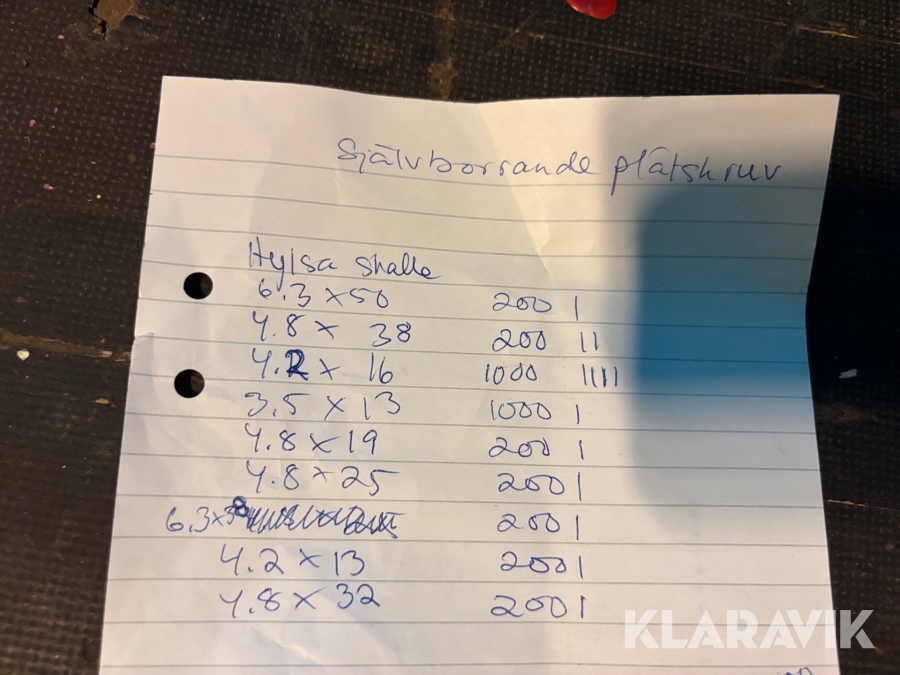 Självborrande plåtskruv
Hylsa skalle
6.3 x 50 200 |
4.8 x 38 200 ||
4.2 x 16 1000 ||||
3.5 x 13 1000 |
4.8 x 19 200 |
4.8 x 25 200 |
6.3 x 38 200 |
4.2 x 13 200 |
4.8 x 32 200 |
KLARAVIK